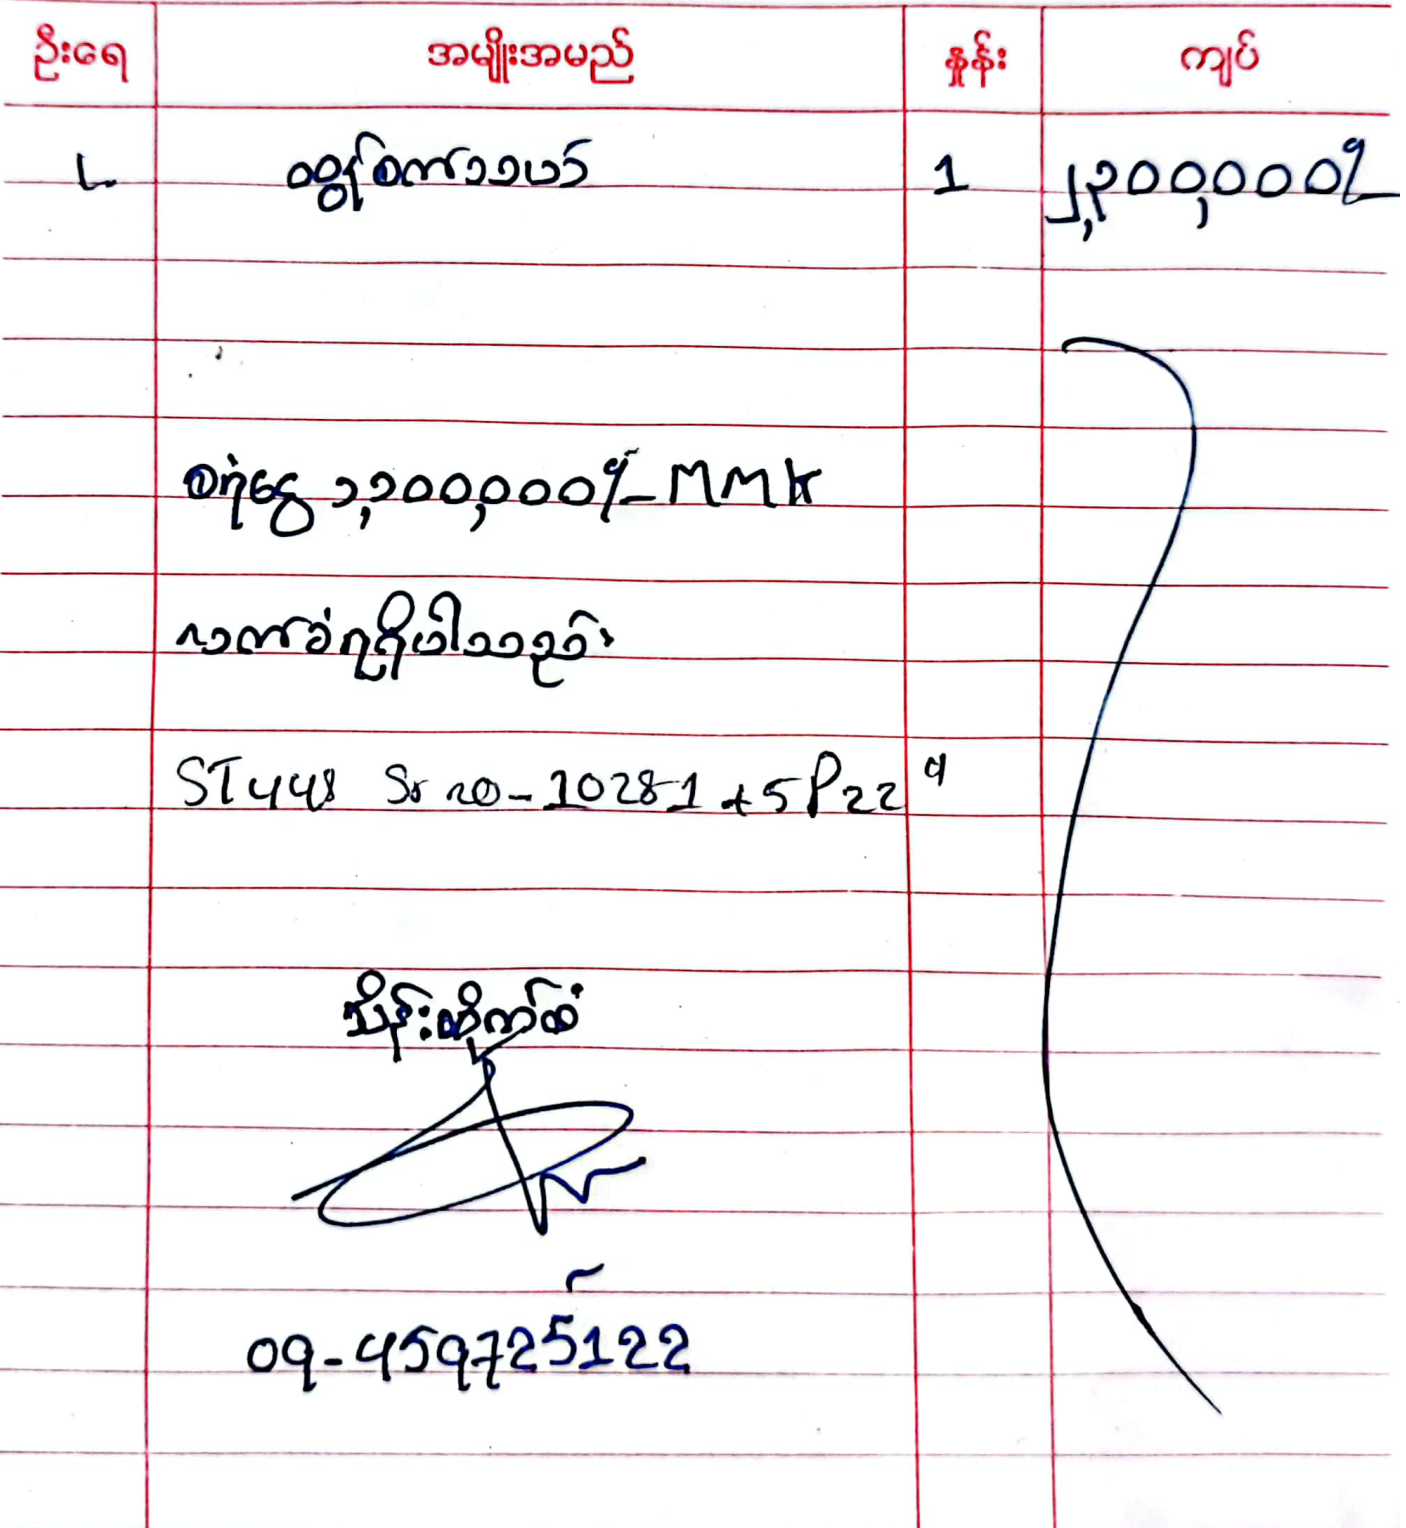 ဦးရေ အမျိုးအမည် နှုန်း ကျပ်
1 ၂,၃၀၀,၀၀၀
စရံငွေ ၁,၃၀၀,၀၀၀ MMK
လက်ခံရရှိပါသည်။
ST448 Sr no-10281 +5P22
သိန်းထိုက်ထံ
09-459725122